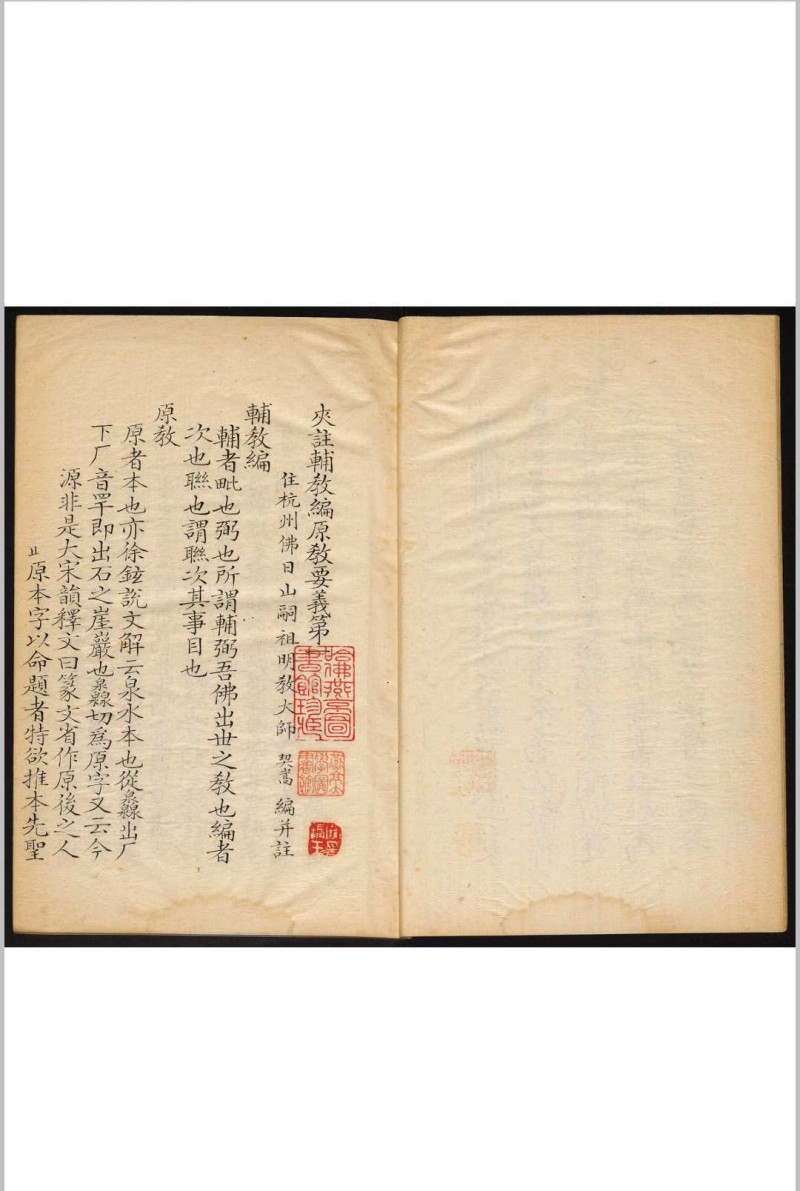 夾註輔教編原教要義第一
住杭州佛日山嗣祖明教大師 契嵩 編并註
輔教編
輔者毗也弼也所謂輔弼吾佛出世之教也編者
次也聯也謂聯次其事目也
原教
原者本也亦徐鉉說文解云泉水本也從灥出厂
下厂音罕即出石之崖巖也灥切為原字又云今
源非是大宋韻釋文曰篆文省作原後之人
原本字以命題者特欲推本先聖
哈佛燕京圖書館珍藏